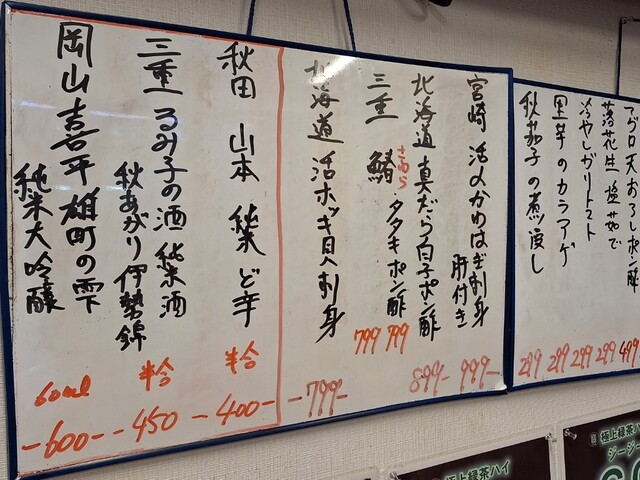 マグロ天おろしポン酢
499
落花生 塩茹で
299
冷やしガリトマト
299
里芋のカラアゲ
299
秋茄子の煮浸し
299
宮崎 活〆かわはぎ刺身
肝付き
999-
北海道 真だら白子ポン酢
899-
三重 鰆 タタキ ポン酢
さわら
799 799
北海道 活ホッキ貝刺身
-799-
秋田 山本 純米 ど辛
半合
-400-
三重 るみ子の酒 純米酒
秋あがり伊勢錦
半合
-450-
岡山 喜平 雄町の雫
純米大吟醸
60ml
-600-
極上緑茶ハイ
極上緑茶ハイ
ジージー